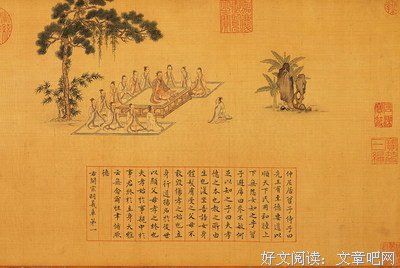 仲尼居曾子侍子曰
先王有至德要道以
順天下民用和睦上
下無怨女知之乎曾
子避席曰參不敏何
足以知之子曰夫孝
德之本也教之所由
生也復坐吾語女身
體髮膚受之父母不
敢毀傷孝之始也立
身行道揚名於後世
以顯父母孝之終也
夫孝始於事親中於
事君終於立身大雅
云無念爾祖聿脩厥
德
右開宗明義章第一
好文阅读：文章吧网